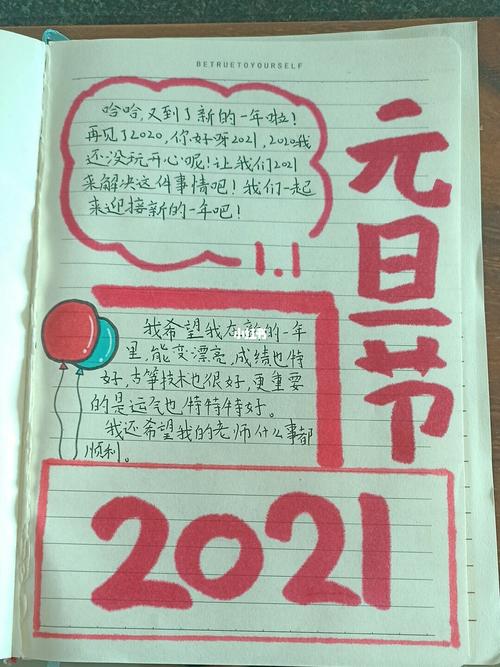 BETRUETOYOURSELF
哈哈,又到了新的一年啦!
再见了2020,你好呀2021,2020我
还没玩开心呢!让我们2021
来解决这件事情吧!我们一起
来迎接新的一年吧!
1.1
元旦节
我希望我在新的一年
里,能变漂亮,成绩也特
好,古筝技术也很好,更重要
的是运气也特特特好。
我还希望我的老师什么事都
顺利。
小红书
2021